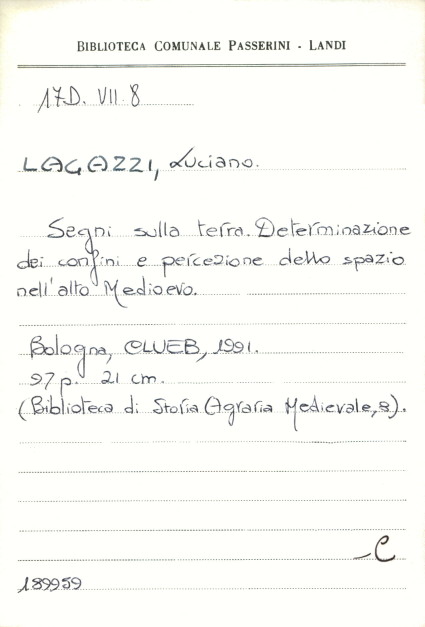 BIBLIOTECA COMUNALE PASSERINI - LANDI
17D. VII. 8
LAGAZZI, Luciano.
Segni sulla terra. Determinazione
dei confini e percezione dello spazio
nell'alto Medioevo.
Bologna, CLUEB, 1991.
97 p. 21 cm.
(Biblioteca di Storia Agraria Medievale, 8).
C
189959